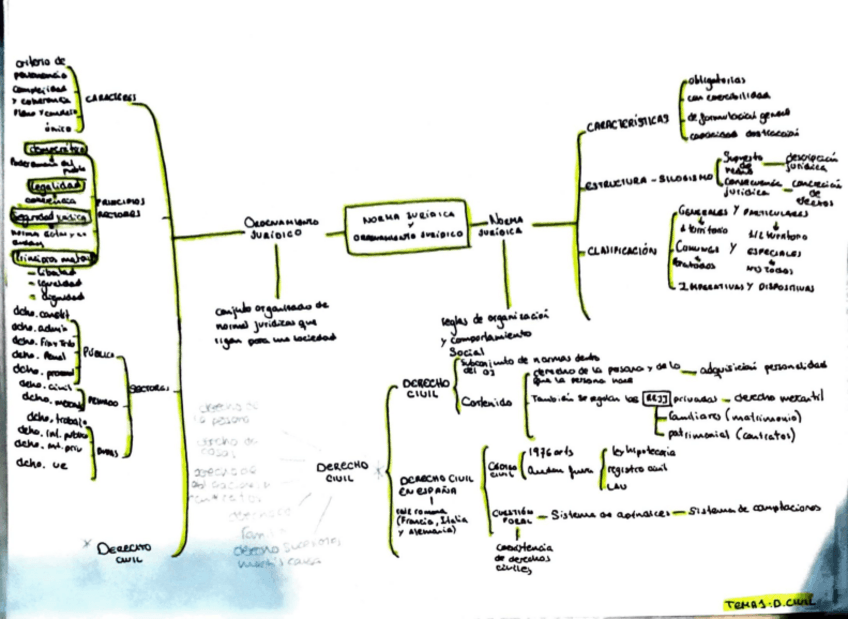 criterio de
pertenencia
complejidad
y coherencia
Pleno y completo
único
CARACTERES
democrático
Poder emana del
pueblo
legalidad
coherencia
Seguridad jurídica
PRINCIPIOS
RECTORES
Principios mater
- libertad
- igualdad
- dignidad
dcho. constit
dcho. admin
dcho. Fin y Trib
dcho. Penal
dcho. procesal
PÚBLICO
dcho. civil
dcho. mercantil
PRIVADO
dcho. trabajo
dcho. int. público
dcho. int. priv
dcho. UE
SECTORES
* DERECHO
CIVIL
ORDENAMIENTO
JURÍDICO
conjunto organizado de
normas jurídicas que
rigen para una sociedad
NORMA JURÍDICA
Y
ORDENAMIENTO JURÍDICO
NORMA
JURÍDICA
reglas de organización
y comportamiento
social
CARACTERÍSTICAS
obligatorias
con coercibilidad
de formulación general
capacidad abstracción
ESTRUCTURA - SILOGISMO
Supuesto
de
hecho
descripción
jurídica
consecuencia
jurídica
concreción
de
efectos
CLASIFICACIÓN
GENERALES Y PARTICULARES
territorio
territorio
COMUNES Y ESPECIALES
IMPERATIVAS Y DISPOSITIVAS
derecho de
la persona
derecho de
cosas
derecho de
obligaciones
contratos
derecho
familia
derecho sucesiones
mortis causa
DERECHO
CIVIL *
DERECHO
CIVIL
subconjunto de normas dentro
del OJ
Contenido
derecho de la persona y de lo
que la persona hace
adquisición personalidad
También se regulan las RRJJ privadas - derecho mercantil
familiares (matrimonio)
patrimonial (contratos)
DERECHO CIVIL
EN ESPAÑA
(Francia, Italia
y Alemania)
CÓDIGO
CIVIL
1976 arts
Quedan fuera
ley hipotecaria
registro civil
LAU
CUESTIÓN
FORAL
- Sistema de apéndices - Sistema de compilaciones
coexistencia
de derechos
civiles
TEMA 1: D. CIVIL